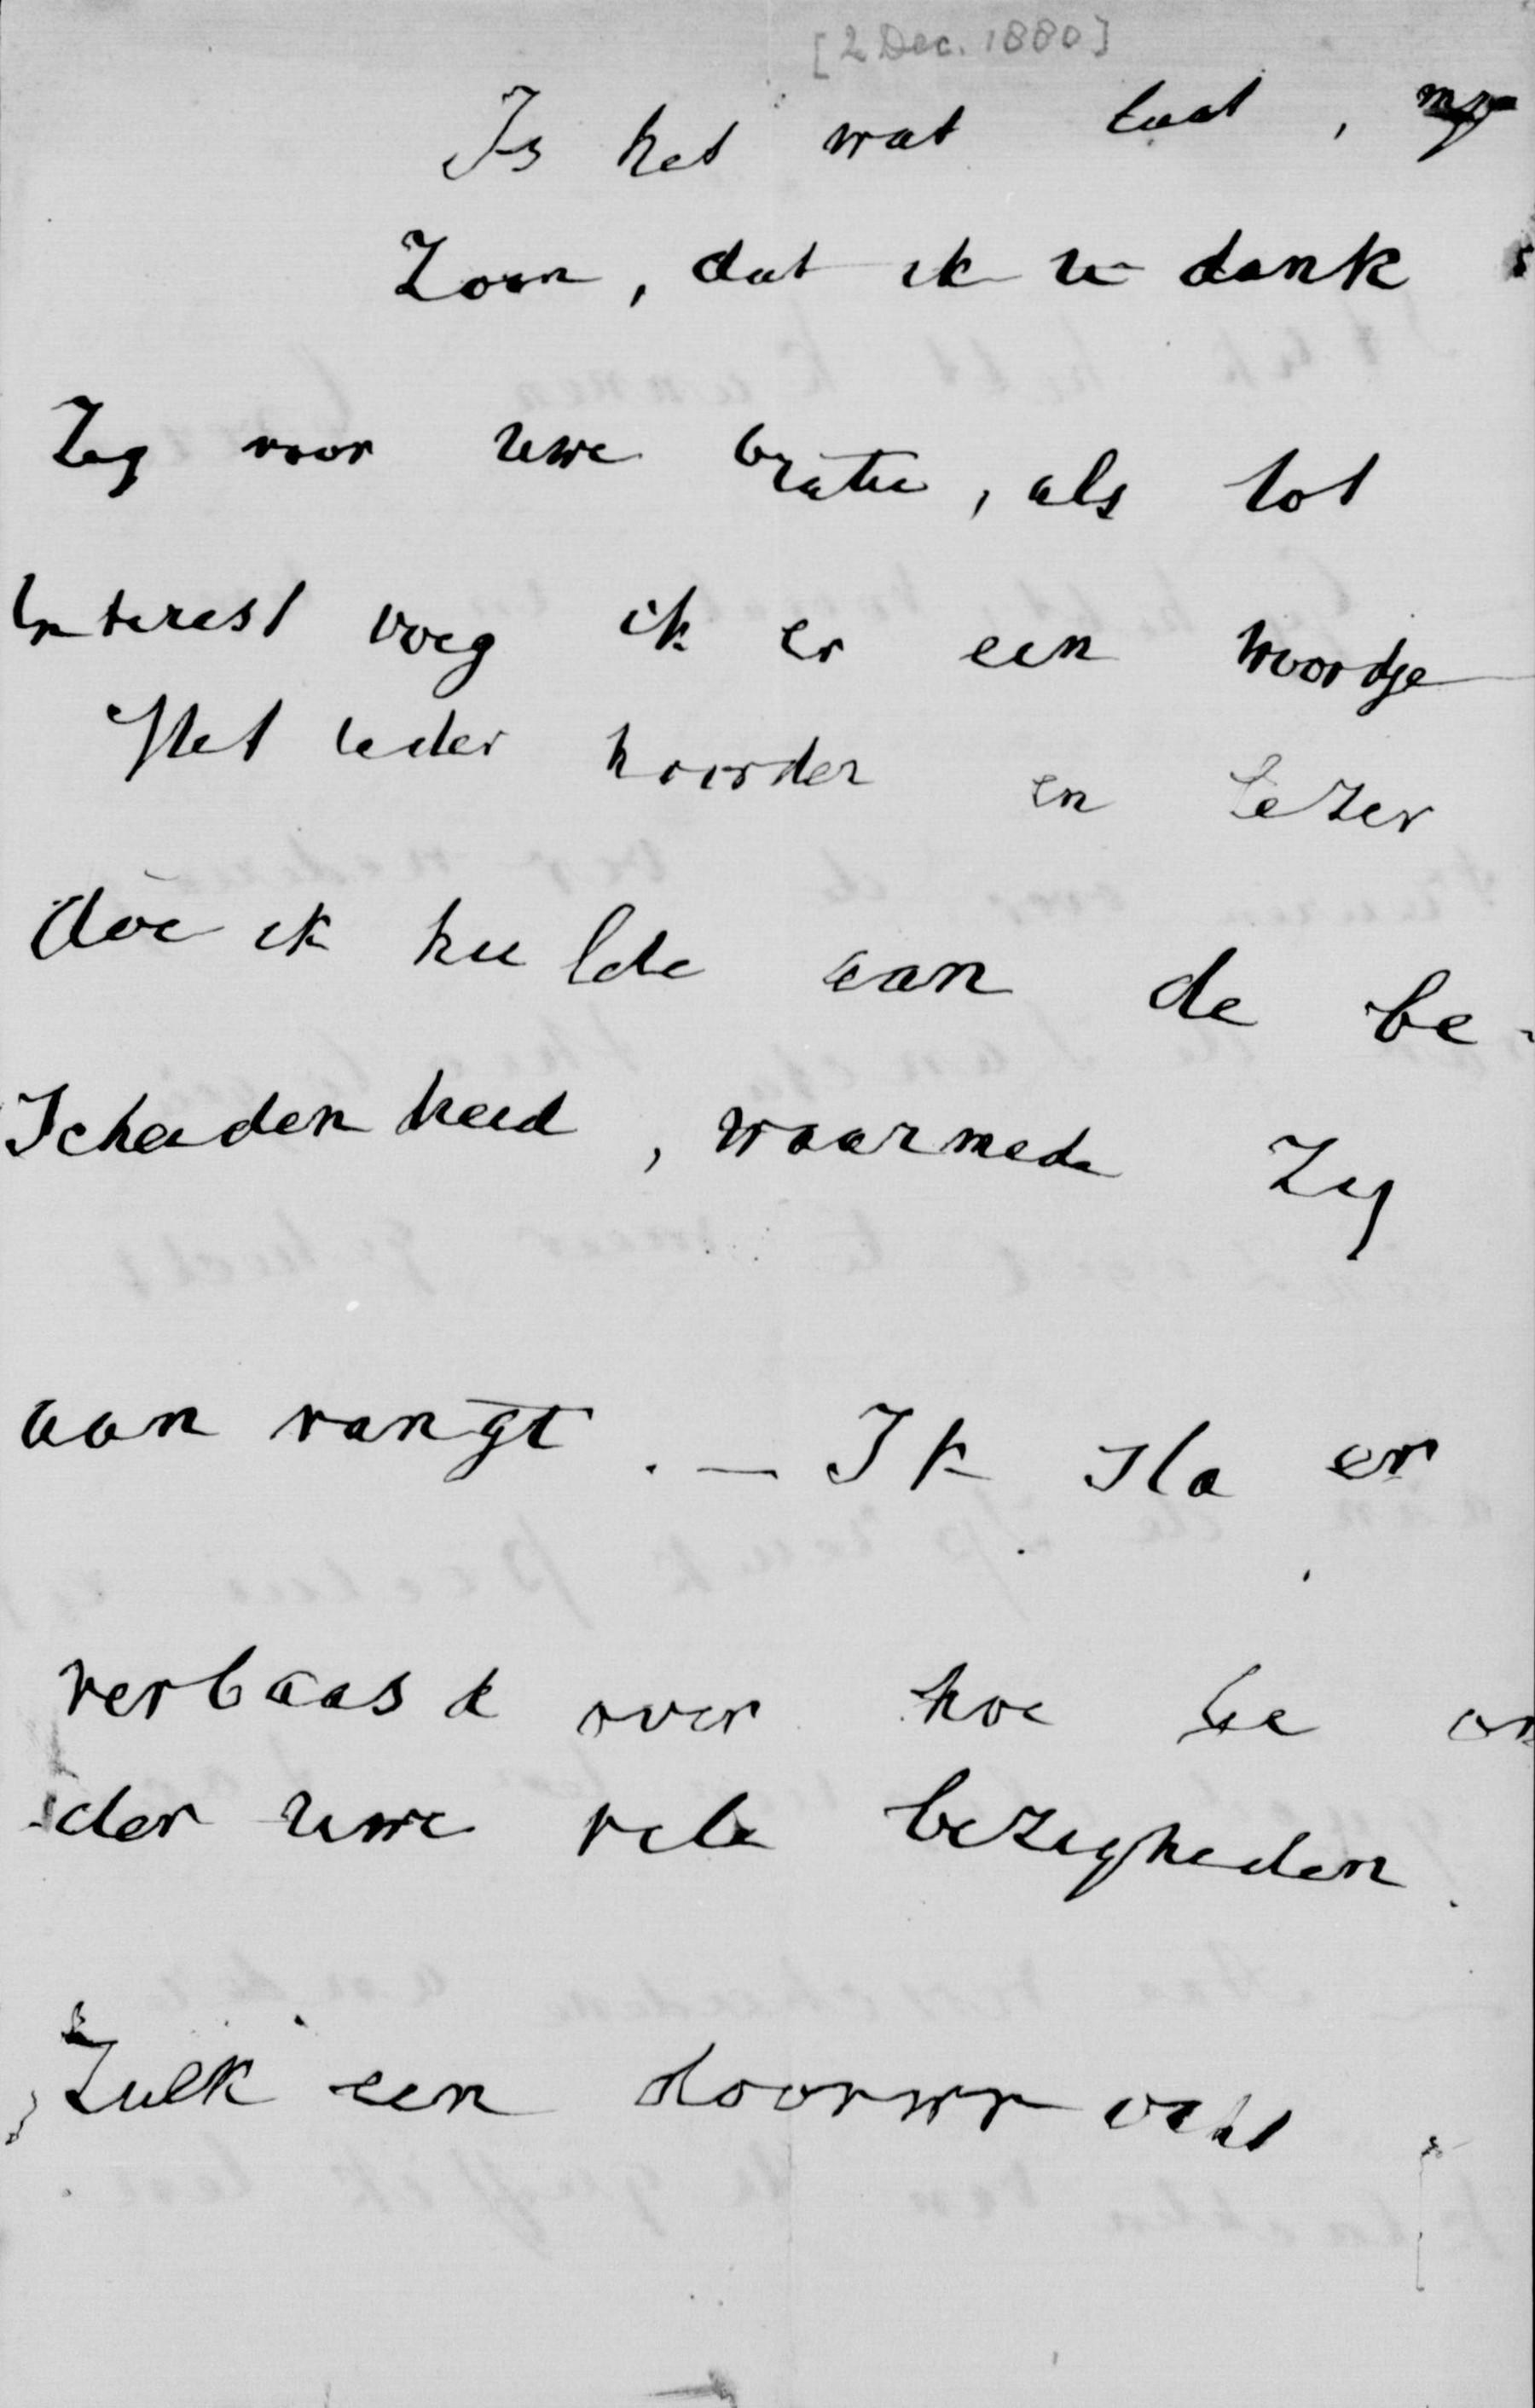 [2 Dec. 1880]
Is het wat laat, mijn
Zoon, dat ik u dank
Zeg voor uwe oratie, als tot
Interest voeg ik er een woordje
Met ieder hoorder en lezer
doe ik hulde aan de be-
scheidenheid, waarmede zij
aan vangt. — Ik sta er
verbaasd over hoe ge on
der uwe vele bezigheden
Zulk een doorwrocht